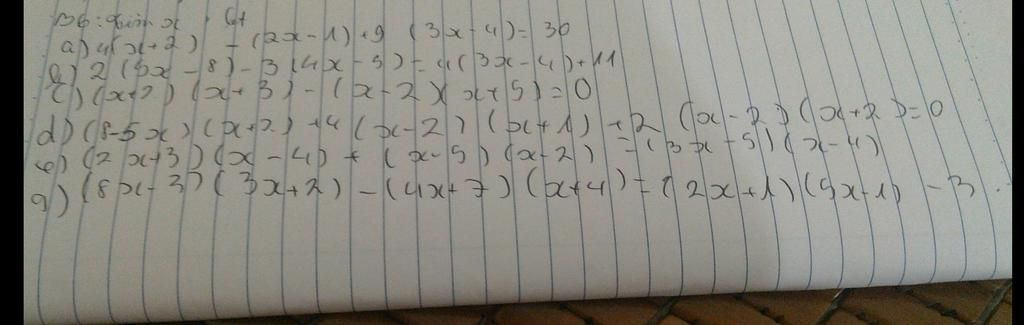 B6: tìm x
a) 4(x+2) - (2x-1)+9 (3x-4) = 30
b) 2 (5x-8) - 3 (4x-5) = 4(3x-4)+11
c) (x+2) (x+3) - (x-2)(x+5) = 0
d) (8-5x)(x+2)+4 (x-2) (x+1) +2 (x-2)(x+2) = 0
e) (2x+3)(x-4) + (x-5) (x-2) = (3x-5)(x-4)
g) (8x-3) (3x+2) - (4x+7)(x+4) = (2x+1)(5x-1) - 3